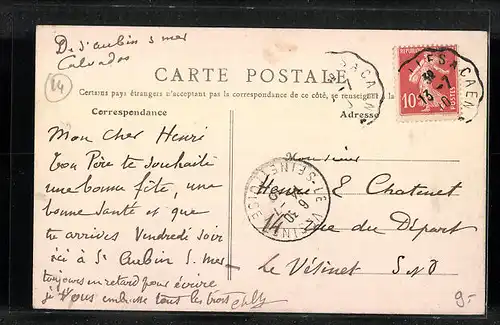 De St Aubin s mer
Calvados
14
CARTE POSTALE
Certains pays étrangers n'acceptant pas la correspondance de ce côté, se renseigner à la
Correspondance
Adresse
LES A CAEN
LES A CAEN
10
POSTES
Mon Cher Henri
Ton Père te souhaite
une bonne fête, une
bonne santé et que
tu arrives Vendredi soir
ici à St Aubin S. mer
toujours en retard pour écrire
je vous embrasse tous les trois
Monsieur
Henri E Chatenet
14 rue du Départ
Le Vésinet S & O
LE VESINET
SEINE ET OISE
9.-